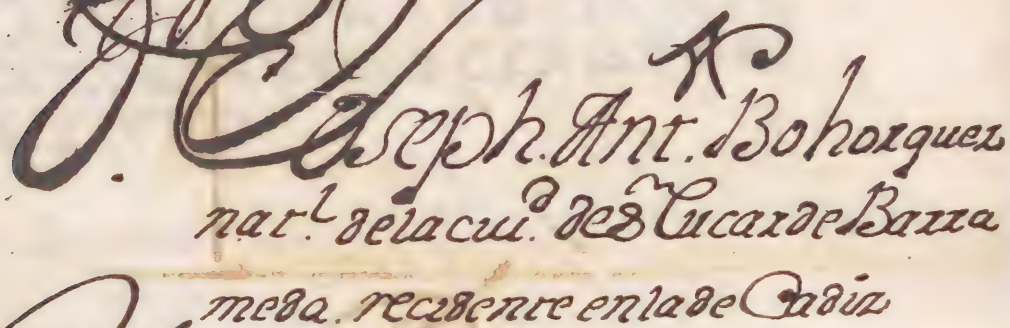 Joseph. Ant. Bohorquez
nat.l de la ciu.d de Sn Lucar de Barra
meda. recidente en la de Cadiz